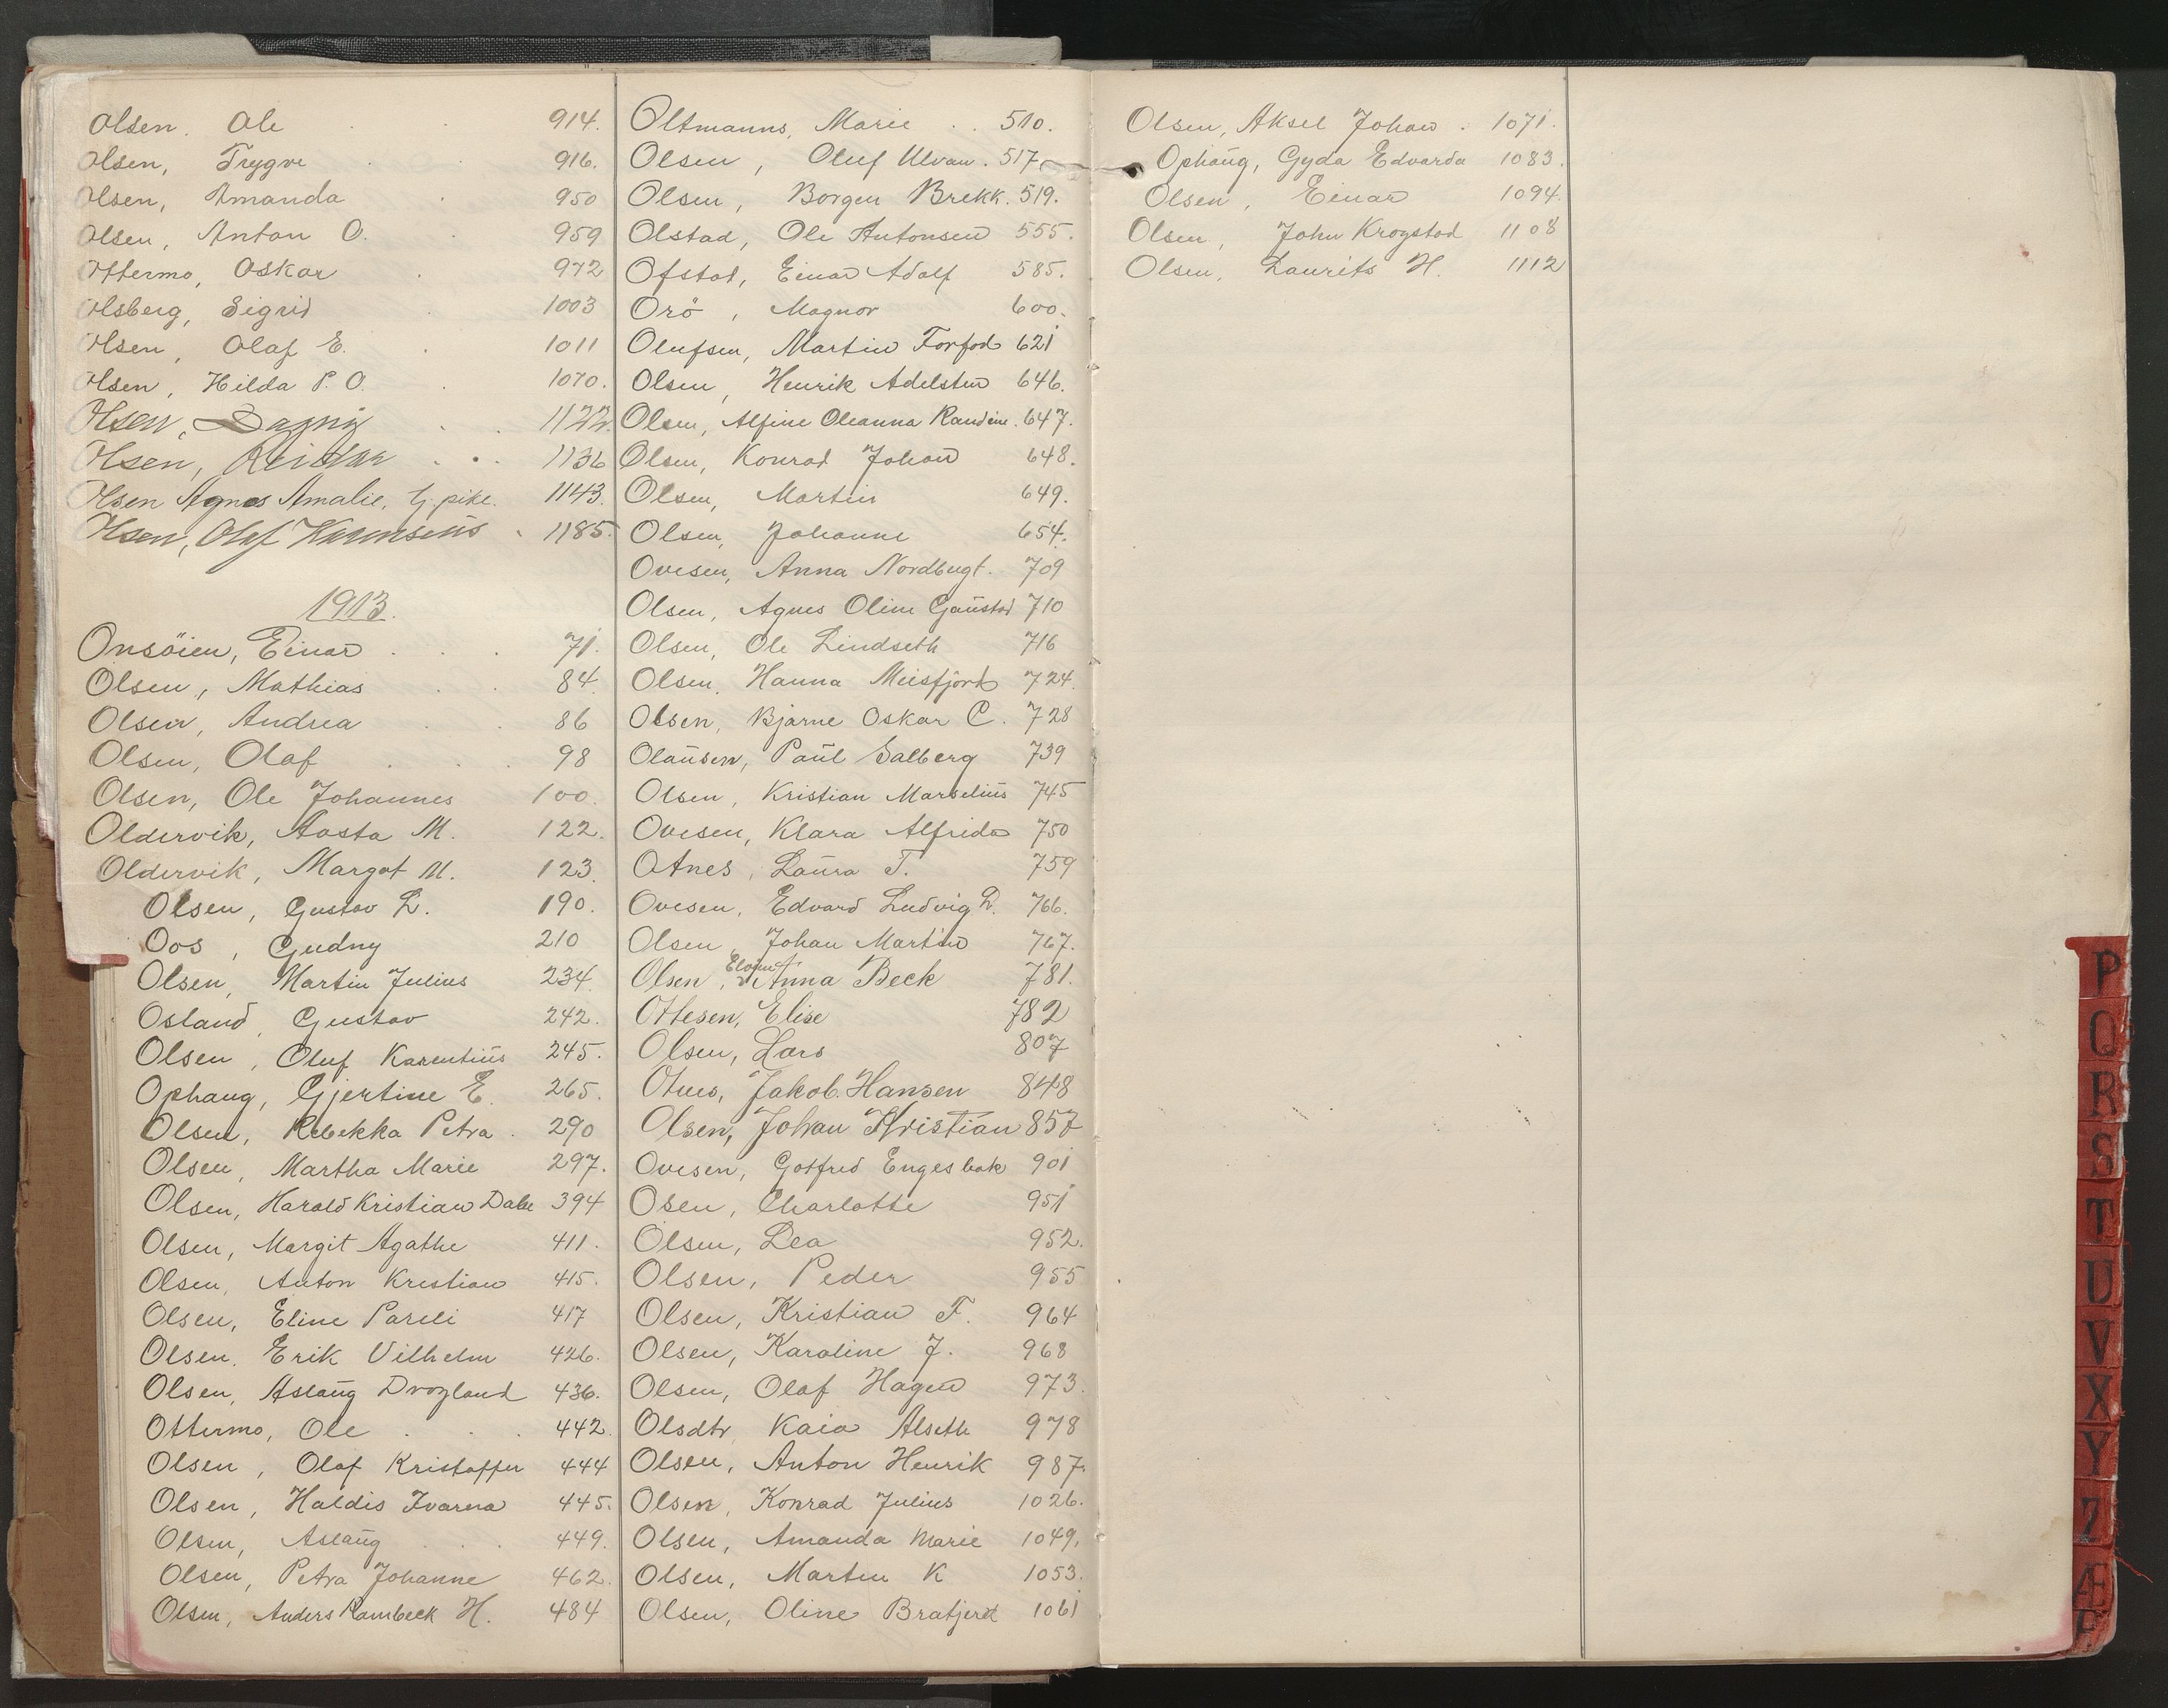 Olsen. Ole 914.
Olsen, Trygve 916.
Olsen, Amanda 950
Olsen, Anton O. 959
Ottermo, Oskar 972
Olsberg, Sigrid 1003
Olsen, Olaf E. 1011
Olsen, Hilda P. O. 1070.
Olsen, Dagny 1122.
Olsen, Reidar 1136
Olsen Agnes Amalie, tj. pike. 1143.
Olsen, Olaf 1185.
1913.
Onsöien, Einar 71.
Olsen, Mathias 84.
Olsen, Andrea 86
Olsen, Olaf 98
Olsen, Ole Johannes 100.
Oldervik, Aasta M. 122.
Oldervik, Margot M. 123.
Olsen, Gustav L. 190.
Oos, Gudny 210
Olsen, Martin Julius 234.
Osland, Gustav 242.
Olsen, Oluf Karentius 245.
Ophaug, Gjertine E. 265.
Olsen, Rebekka Petra. 290
Olsen, Martha Marie 297.
Olsen, Harald Kristian Dahl 394
Olsen, Margit Agathe 411.
Olsen, Anton Kristian 415.
Olsen, Eline Pareli 417
Olsen. Erik Vilhelm 426.
Olsen, Aslaug 436.
Ottermo, Ole 442.
Olsen, Olaf Kristoffer 444
Olsen, Haldis Ivarna 445.
Olsen, Aslaug 449.
Olsen, Petra Johanne 462.
Olsen, Anders Rambeck H. 484
Oltmanns, Marie 510.
Olsen, Oluf Ulvan. 517
Olsen, Borgen Brekk. 519.
Olstad, Ole Antonsen 555.
Ofstad, Einar Adolf 585.
Orö, Magnor 600.
Olufsen, Martin Forfod 621
Olsen, Henrik Adelsten 646.
Olsen, Alfine Oleanna Randine. 647.
Olsen, Konrad Johan 648.
Olsen, Martin 649.
Olsen, Johanne 654.
Ovesen, Anna Nordbugt. 709
Olsen, Agnes Oline Gaustad 710
Olsen, Ole Lindseth 716
Olsen, Hanna Meisfjord 724.
Olsen, Bjarne Oskar C. 728
Olausen, Paul Salberg 739
Olsen, Kristian Marselius 745
Ovesen, Klara Alfrida 750
Otnes, Laura T. 759
Ovesen, Edvard Ludvig D. 766.
Olsen, Johan Martin 767.
Olsen, Anna Beck 781.
Ottesen, Elise 782
Olsen, Lars 807
Otnes, Jakob Hansen 848
Olsen, Johan Kristian 857
Ovesen, Gotfred Engesbak 901
Osen, Charlotte 951
Olsen, Lea 952.
Olsen, Peder 955
Olsen, Kristian F. 964
Olsen, Karoline J. 968
Olsen, Olaf Hagen 973.
Olsdtr Kaia Alseth 978
Olsen, Anton Henrik 987.
Olsen, Konrad Julius 1026.
Olsen, Amanda Marie 1049.
Olsen, Martin K 1053.
Olsen, Oline Bratjeret 1061
Olsen, Aksel Johan. 1071.
Ophaug, Gyda Edvarda 1083.
Olsen, Einar 1094.
Olsen, John Krogstad 1108
Olsen, Laurits H. 1112
P
Q
R
S
T
U
V
X
Y
Z
Æ